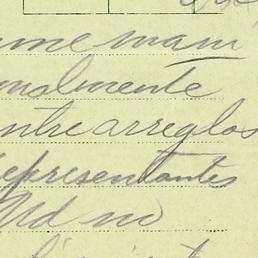 me mani
nalmente
entre arreglos
representantes
Md no